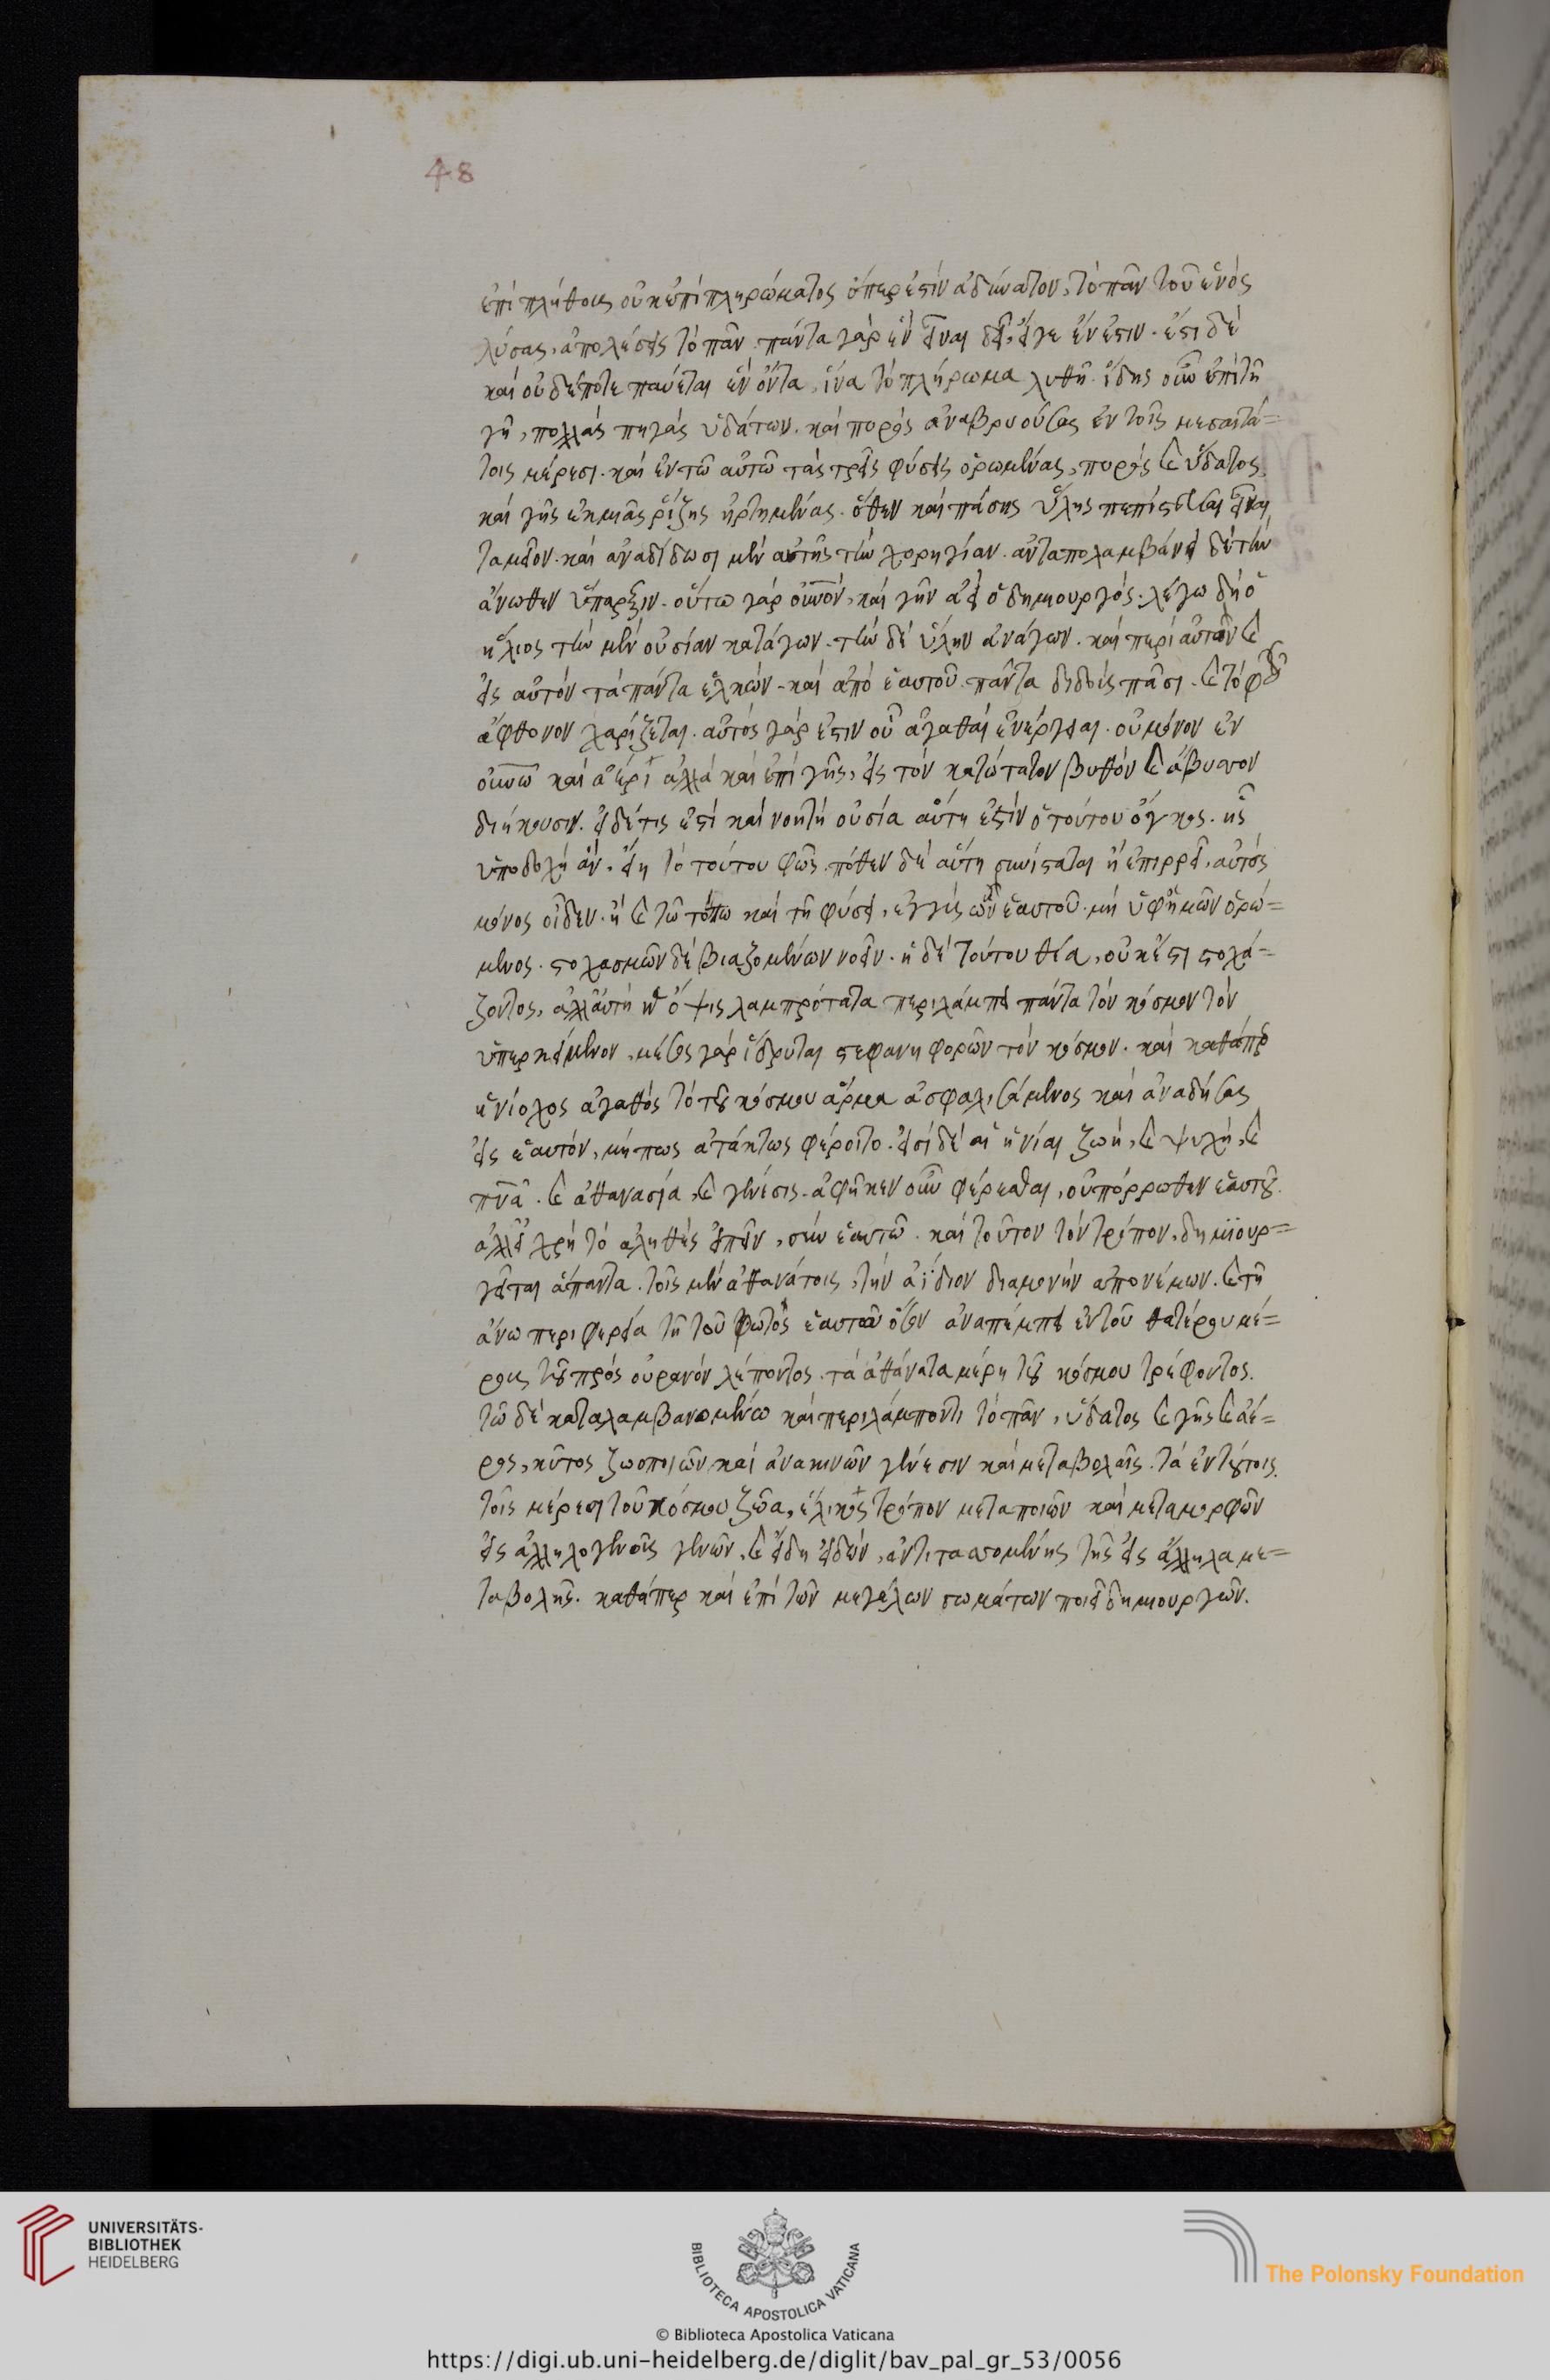 48
ἐπὶ πλήθους οὐκ ἐπὶ πληρώματος ὅπερ ἐστὶν ἀδύνατον, τὸ πᾶν τοῦ ἑνὸς
λύσας, ἀπολέσεις τὸ πᾶν. πάντα γὰρ ἓν εἶναι δεῖ, εἴγε ἕν ἐστιν. ἔστι δὲ
καὶ οὐδέποτε παύεται ἓν ὄντα, ἵνα τὸ πλήρωμα λυθῆ. ἴδης οὖν ἐπὶ τῆ
γῆ, πολλὰς πηγὰς ὑδάτων. καὶ πυρὸς ἀναβρυούσας ἐν τοῖς μεσαιτά=
τοις μέρεσι. καὶ ἐν τῶ αὐτῶ τὰς τρεῖς φύσεις ὁρωμένας, πυρὸς καὶ ὕδατος
καὶ γῆς ἐκ μιᾶς ῥίζης ἠρτημένας. ὅθεν καὶ πάσης ὕλης πεπίστευται εἶναι
ταμεῖον. καὶ ἀναδίδωσι μὲν αὐτῆς τὴν χορηγίαν. ἀνταπολαμβάνει δὲ τὴν
ἄνωθεν ὕπαρξιν. οὕτω γὰρ οὐνον, καὶ γῆν ἀεὶ ὁ δημιουργός. λέγω δὴ ὁ
ἥλιος τὴν μὲν οὐσίαν κατάγων. τὴν δὲ ὕλην ἀνάγων. καὶ περὶ αὐτὸν καὶ
εἰς αὐτὸν τὰ πάντα ἕλκων. καὶ ἀπὸ ἑαυτοῦ πάντα διδοὺς πᾶσι. καὶ τὸ φῶς
ἄφθονον χαρίζεται. αὐτὸς γάρ ἐστιν οὗ ἀγαθαὶ ἐνέργειαι. οὐ μόνον ἐν
οὐνω καὶ ἀέρι ἀλλὰ καὶ ἐπὶ γῆς, εἰς τὸν κατώτατον βυθὸν καὶ ἄβυσσον
διήκουσιν. εἰ δέ τις ἐστὶ καὶ νοητὴ οὐσία αὕτη ἐστὶν ὁ τούτου ὄγκος. ἧς
ὑποδοχὴ ἂν, εἴη τὸ τούτου φῶς. πόθεν δὲ αὕτη συνίσταται ἢ ἐπιρρεῖ, αὐτὸς
μόνος οἶδεν. ἢ καὶ τῶ τόπω καὶ τῆ φύσει, ἐγγὺς ὢν ἑαυτοῦ. μὴ ὑφ' ἡμῶν ὁρώ=
μενος. στοχασμῶν δὲ βιαζομένων νοεῖν. ἡ δὲ τούτου θέα, οὐκ ἔστι στοχά=
ζοντος, ἀλλ' αὐτὴ ἡ ὄψις λαμπρότατα περιλάμπει πάντα τὸν κόσμον τὸν
ὑπερκείμενον. μέσος γὰρ ἵδρυται στεφανηφορῶν τὸν κόσμον. καὶ καθάπερ
ἡνίοχος ἀγαθὸς τὸ τοῦ κόσμου ἅρμα ἀσφαλισάμενος καὶ ἀναδήσας
εἰς ἑαυτὸν, μήπως ἀτάκτως φέροιτο. εἰσὶ δὲ αἱ ἡνίαι ζωὴ, καὶ ψυχὴ, καὶ
πνα. καὶ ἀθανασία, καὶ γένεσις. ἀφῆκεν οὖν φέρεσθαι, οὐ πόρρωθεν ἑαυτοῦ.
ἀλλ' εἰ χρὴ τὸ ἀληθὲς εἰπεῖν, σὺν ἑαυτῶ. καὶ τοῦτον τὸν τρόπον, δημϊουρ=
γεῖται ἅπαντα. τοῖς μὲν ἀθανάτοις, τὴν ἀΐδιον διαμονὴν ἀπονέμων. καὶ τῆ
ἄνω περιφερεία τῆ τοῦ φωτὸς ἑαυτοῦ ὅσον ἀναπέμπει ἐν τοῦ θατέρου μέ=
ρους τοῦ πρὸς οὐρανὸν λέποντος. τὰ ἀθάνατα μέρη τοῦ κόσμου τρέφοντος.
τῶ δὲ καταλαμβανομένω καὶ περιλάμποντι τὸ πᾶν, ὕδατος καὶ γῆς καὶ ἀέ=
ρος, κῦτος ζωοποιῶν καὶ ἀνακινῶν γένεσιν καὶ μεταβολαῖς. τὰ ἐν τούτοις
τοῖς μέρεσι τοῦ κόσμου ζῶα, ἕλικος τρόπον μεταποιῶν καὶ μεταμορφῶν
εἰς ἀλληλογενοῖς γενῶν, καὶ εἴδη εἰδῶν, ἀντιτασσομένης τῆς εἰς ἄλληλα με=
ταβολῆς. καθάπερ καὶ ἐπὶ τῶν μεγάλων σωμάτων ποιεῖ δημιουργῶν.
UNIVERSITÄTS-
BIBLIOTHEK
HEIDELBERG
BIBLIOTECA APOSTOLICA VATICANA
The Polonsky Foundation
© Biblioteca Apostolica Vaticana
https://digi.ub.uni-heidelberg.de/diglit/bav_pal_gr_53/0056